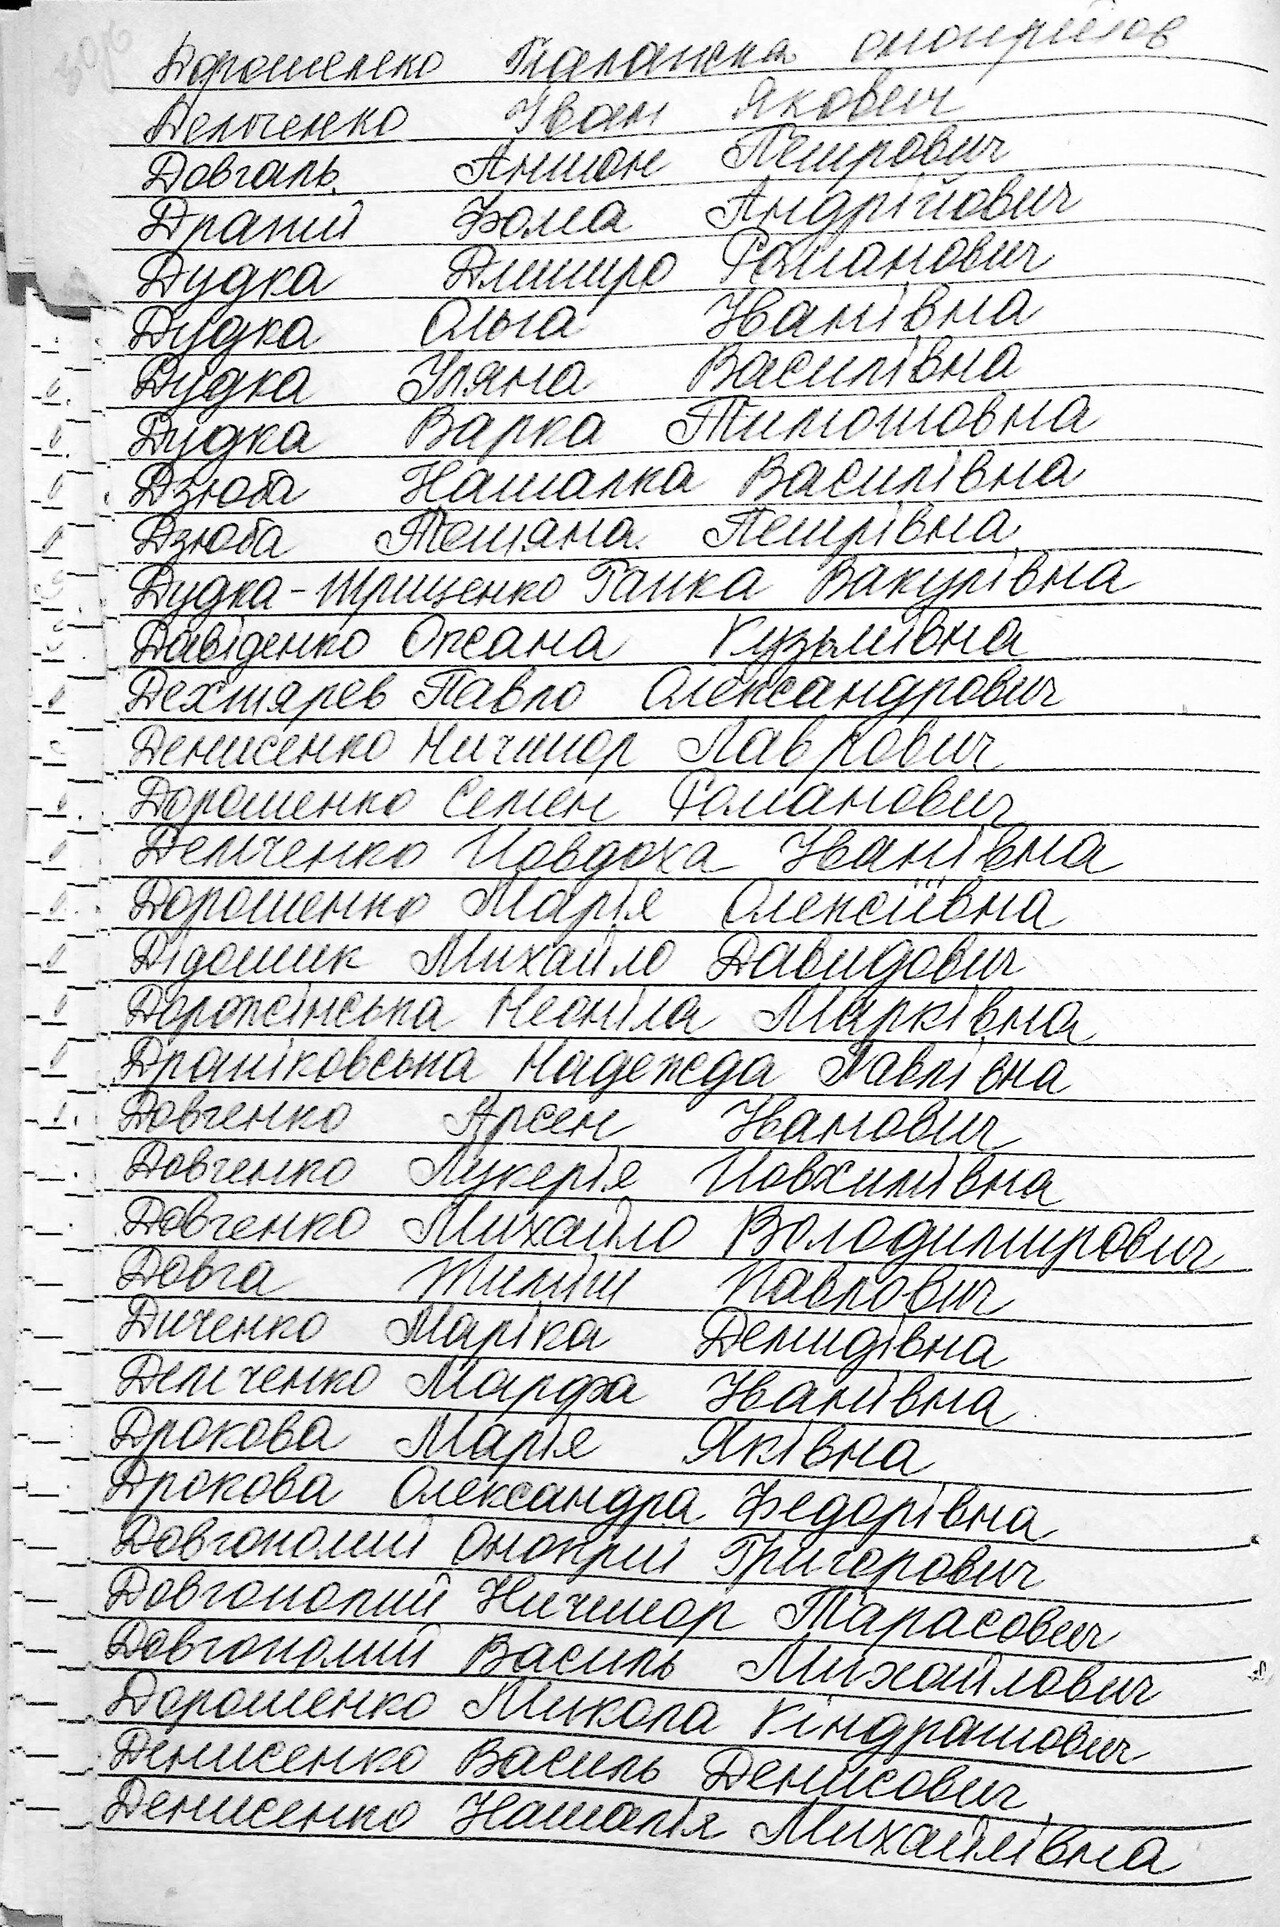 Дорошенко Палажка Онопріїов
Демченко Іван Якович
Довгаль Антон Петрович
Драний Фома Андрійович
Дудка Дмитро Романович
Дудка Ольга Іванівна
Дудка Уляна Василівна
Дудка Варка Тимошовна
Дзюба Наталка Василівна
Дзюба Тетяна Петрівна
Дудка-Грищенко Ганка Вакулівна
Давіденко Оксана Кузьмівна
Дехтярев Павло Олександрович
Денисенко Ничипор Лаврович
Дорошенко Семен Романович
Демченко Йовдоха Іванівна
Дорошенко Марія Олексіївна
Дідошик Михайло Давидович
Дорожінська Неоніла Марківна
Драпіковська Надежда Павлівна
Довченко Арсен Іванович
Довченко Лукерія Йовхимівна
Довченко Михайло Володимирович
Довга Пилип Павлович
Диченко Маріка Демидівна
Демченко Марфа Іванівна
Дрокова Марія Яківна
Дрокова Олександра Федорівна
Довгополий Онопрій Григорович
Довгополий Ничипор Тарасович
Довгополий Василь Михайлович
Дорошенко Микола Кіндратович
Денисенко Василь Денисович
Денисенко Наталія Михайлівна